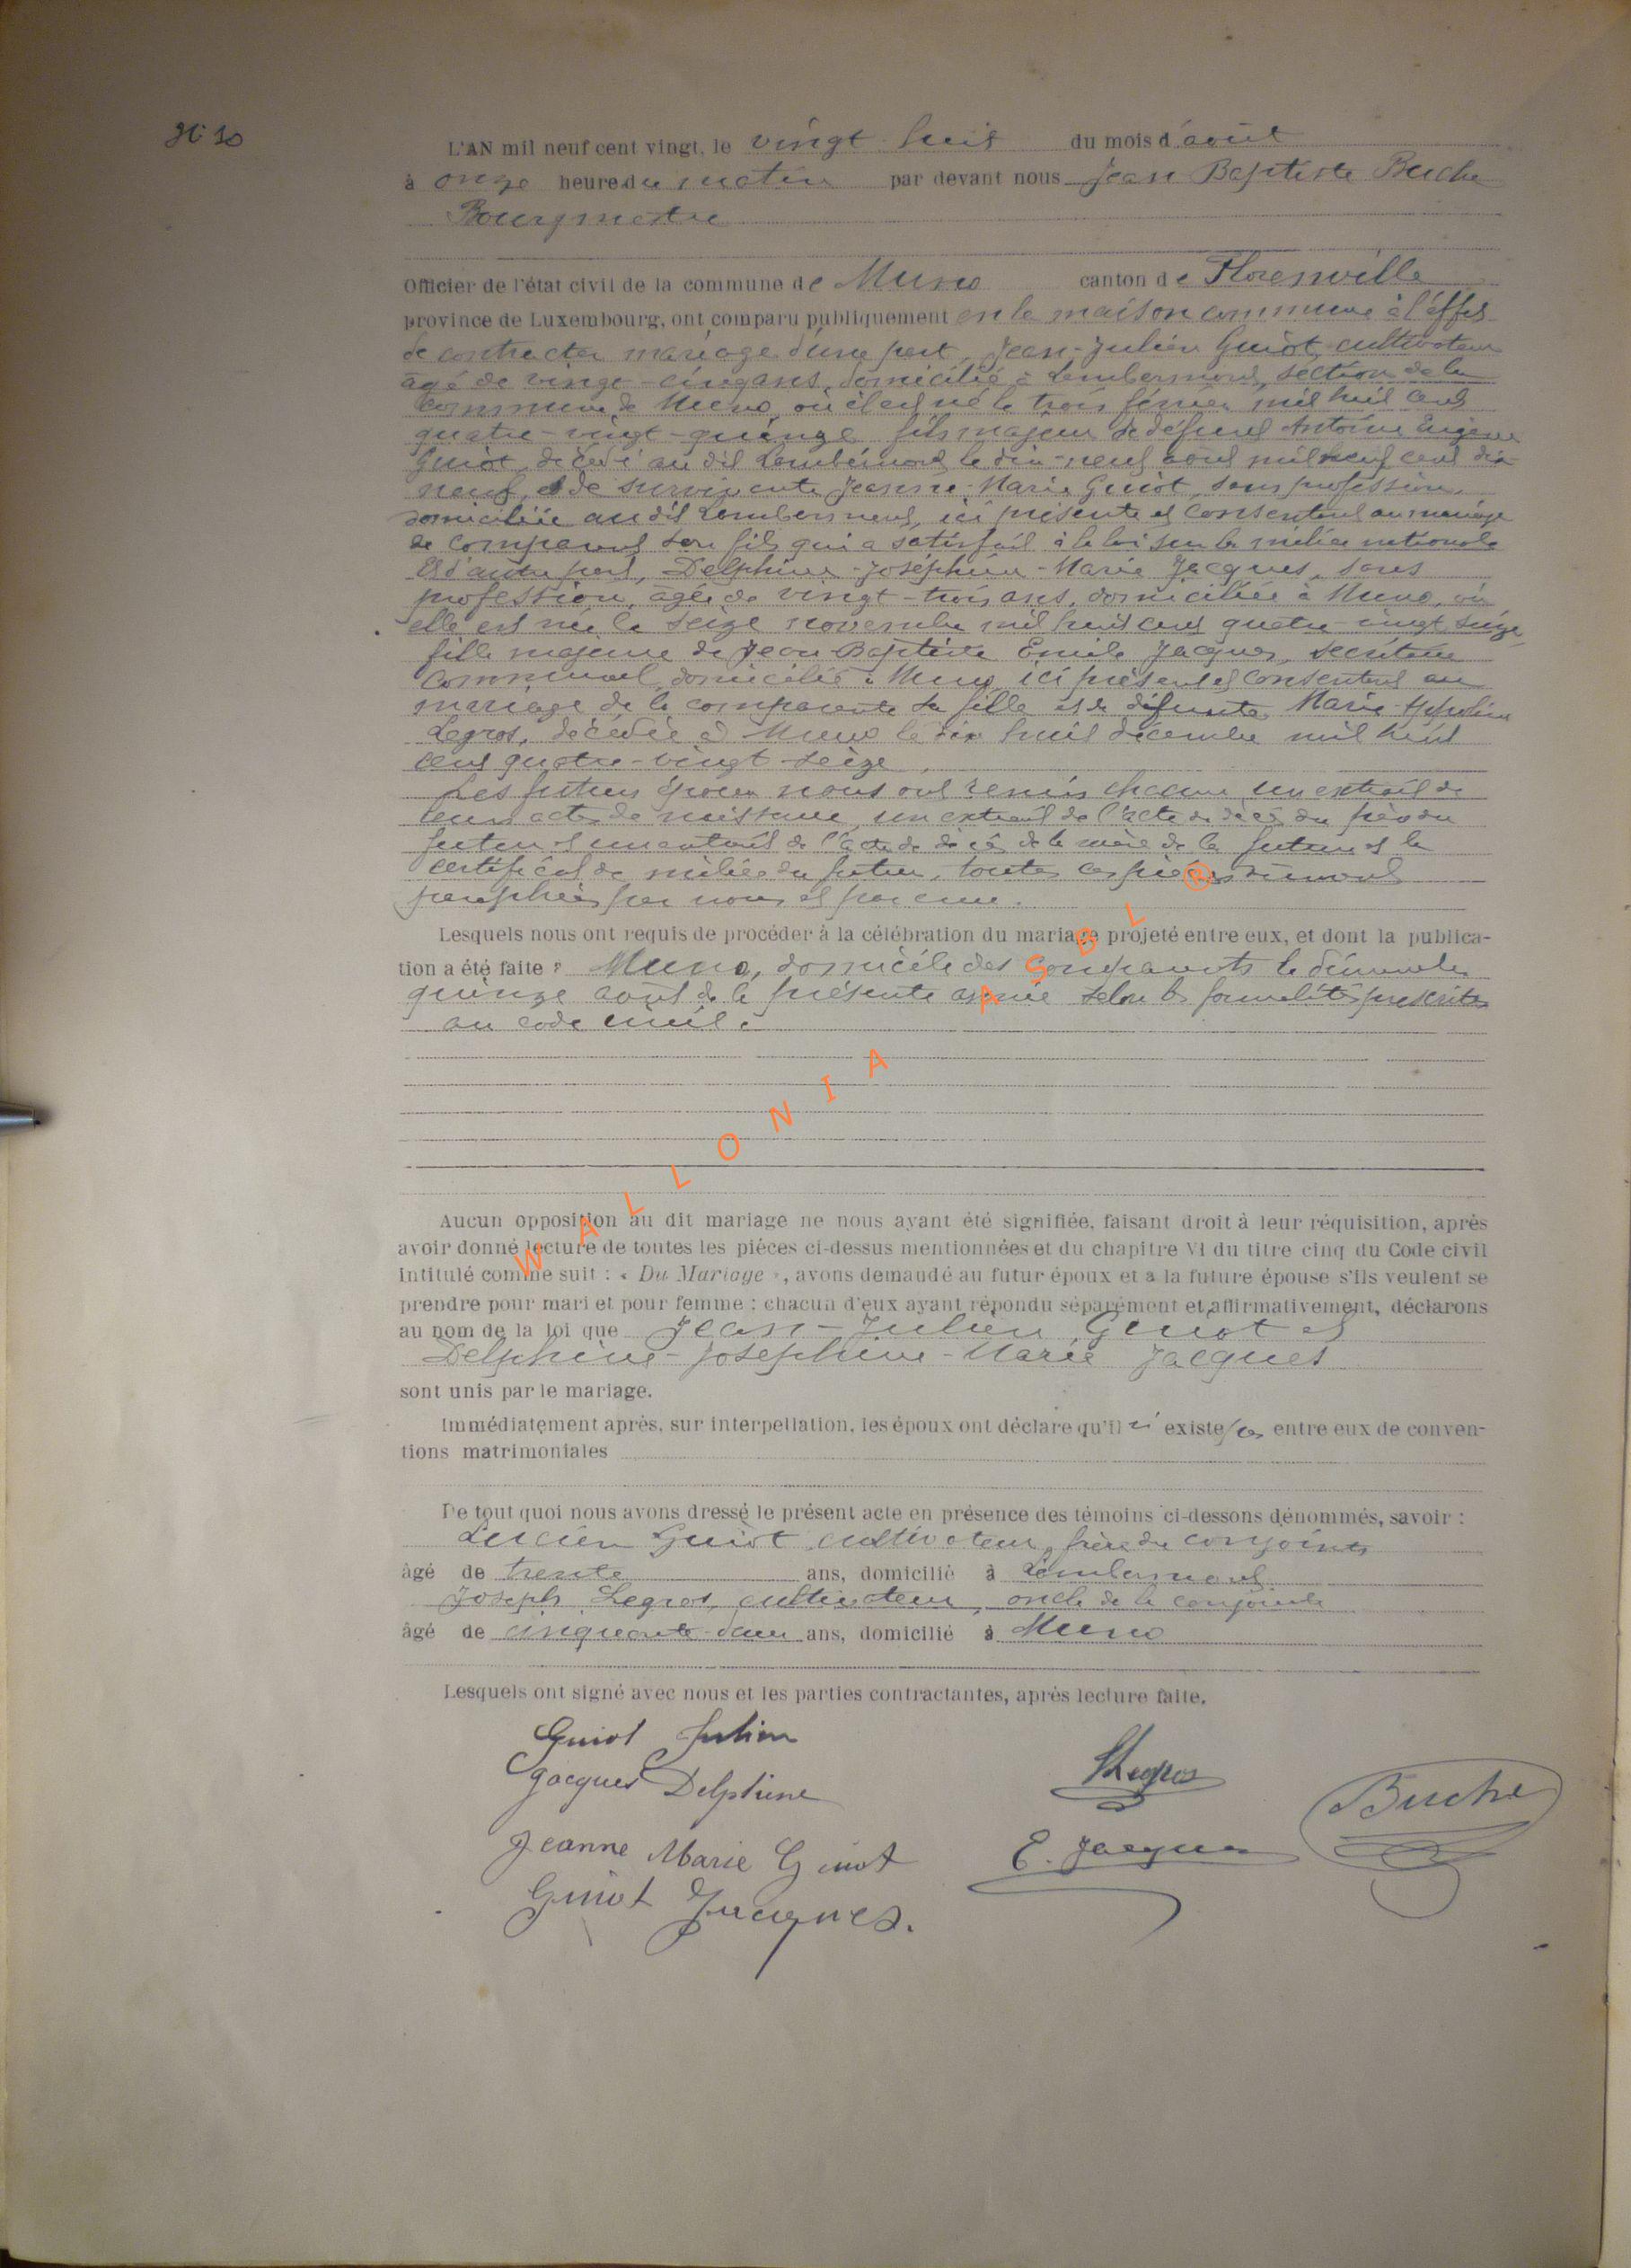 N° 10
L'AN mil neuf cent vingt, le vingt huit du mois d'août
à onze heure du matin par devant nous Jean Baptiste Buche
Bourgmestre
Officier de l'état civil de la commune de Muno canton de Florenville
province de Luxembourg, ont comparu publiquement en la maison commune à l'effet
de contracter mariage d'une part, Jean-Julien Guiot, cultivateur
âgé de vingt-cinq ans, domicilié à Lambermont, section de la
commune de Muno, où il est né le trois février mil huit cent
quatre-vingt-quinze fils majeur de defunt Antoine Eugène
Guiot, décédé au dit Lambermont le dix-neuf août mil neuf cent dix
neuf, et de survivante Jeanne-Marie Guiot, sans profession,
domiciliée au dit Lambermont, ici présente et consentant au mariage
de comparant son fils qui a satisfait à la loi sur la milice nationale
Et d'autre part, Delphine-Joséphine-Marie Jacques, sans
profession, âgée de vingt-trois ans, domiciliée à Muno, où
elle est née le seize novembre mil huit cent quatre-vingt seize,
fille majeure de Jean Baptiste Emile Jacques, secrétaire
communal, domicilié à Muno, ici présent et consentant au
mariage de la comparante sa fille et de défunte Marie
Legros, décédée à Muno le dix huit décembre mil huit
cent quatre-vingt-seize.
Les futurs époux nous ont remis chacun un extrait de
leur acte de naissance, un extrait de l'acte de décès du père du
futur et un extrait de l'acte de décès de la mère de la future et le
certificat de milice du futur, toutes ces pièces
paraphées par nous et par eux.
Lesquels nous ont requis de procéder à la célébration du mariage projeté entre eux, et dont la publica-
tion a été faite à Muno, domicile des comparants le dimanche
quinze août de la présente année selon les formalités prescrites
au code civil.
WALLONIA ASBL ®
Aucun opposition au dit mariage ne nous ayant été signifiée, faisant droit à leur réquisition, après
avoir donné lecture de toutes les pièces ci-dessus mentionnées et du chapitre VI du titre cinq du Code civil
intitulé comme suit : « Du Mariage », avons demaudé au futur époux et a la future épouse s'ils veulent se
prendre pour mari et pour femme ; chacun d'eux ayant répondu séparément et affirmativement, déclarons
au nom de la loi que Jean-Julien Guiot et
Delphine-Joséphine-Marie Jacques
sont unis par le mariage.
Immédiatement après, sur interpellation, les époux ont déclare qu'il n'existe pas entre eux de conven-
tions matrimoniales
De tout quoi nous avons dressé le présent acte en présence des témoins ci-dessons dénommés, savoir :
Lucien Guiot, cultivateur, frère du conjoint
âgé de trente ans, domicilié à Lambermont
Joseph Legros, cultivateur, oncle de la conjointe
âgé de cinquante-deux ans, domicilié à Muno
Lesquels ont signé avec nous et les parties contractantes, après lecture faite.
Guiot Julien
Jacques Delphine
Legros
Buche
Jeanne Marie Guiot
E. Jacques
Guiot Jacques.